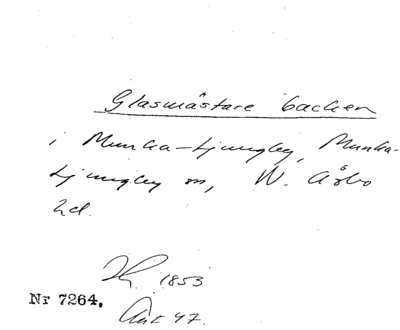 Glasmästare backen
i Munka-Ljungby, Munka-
Ljungby sn, N. Åsbo
hd.
1853
Nr 7264.
Ant 47.